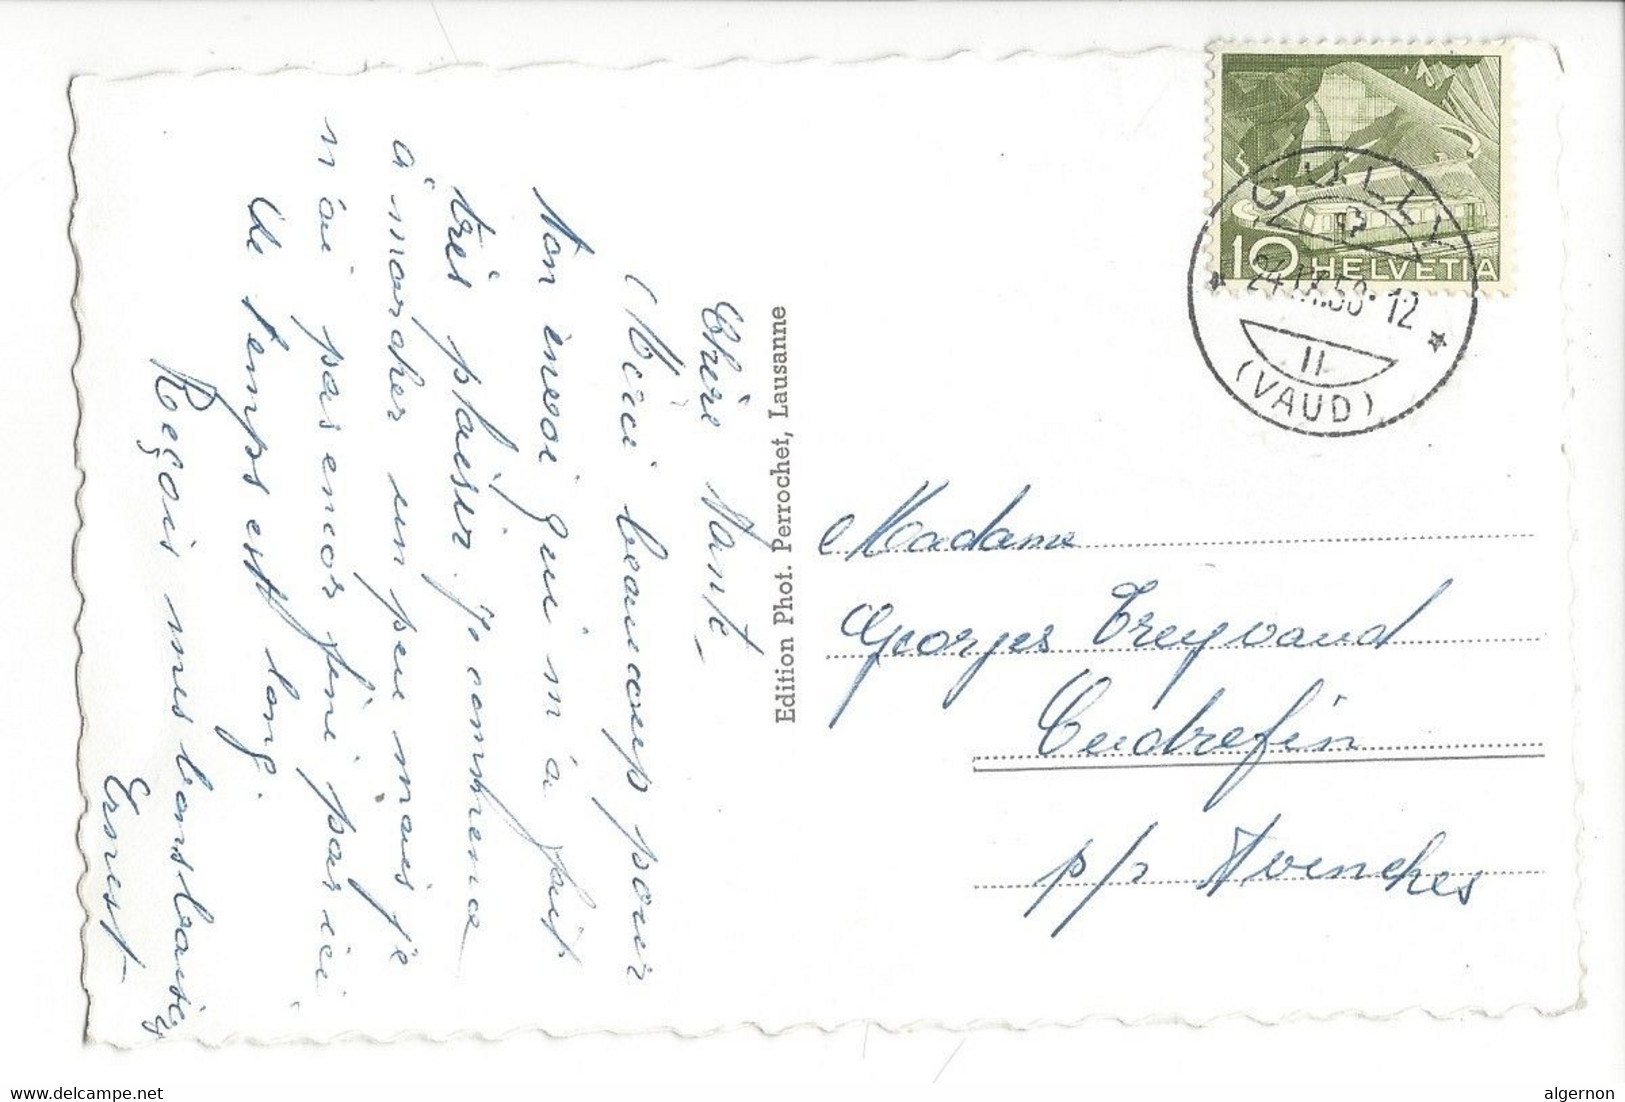 Chère Tante
Merci beaucoup pour
ton invoi qui m'a fait
très plaisir. Je commence
a marcher un peu mais je
n'ai pas encor fini par ici
le temps est long.
Reçois mes bons baisers
Ernest
Edition Phot. Perrochet, Lausanne
10 HELVETIA
CULLY
24.IX.58-12
(VAUD)
Madame
Georges Treyvaud
Cudrefin
p/r Avenches
delcampe.net
algernon